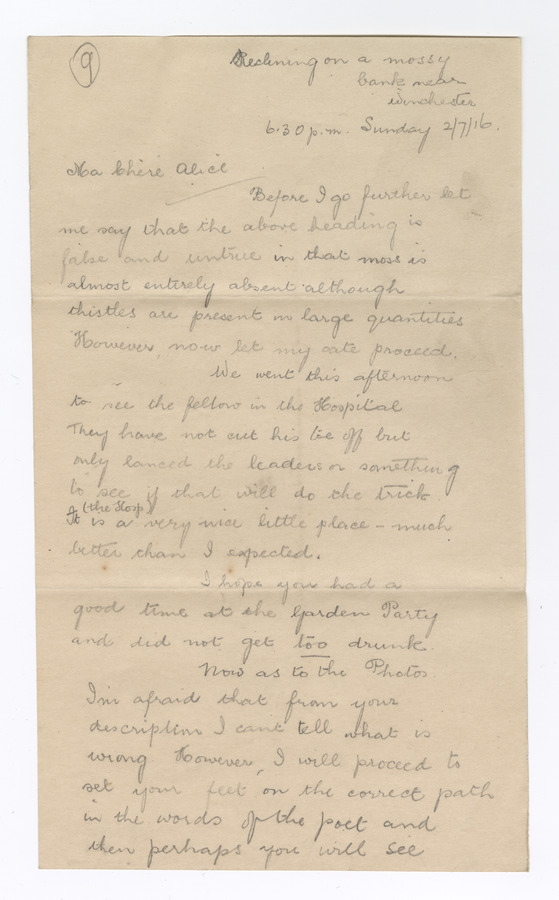 9
Reclining on a mossy
bank near
Winchester
6.30 p.m. Sunday 2/7/16.
Ma Chère Alice
Before I go further let
me say that the above heading is
false and untrue in that moss is
almost entirely absent although
thistles are present in large quantities
However, now let my pen proceed.
We went this afternoon
to see the fellow in the Hospital
They have not cut his toe off but
only lanced the leaders or something
to see if that will do the trick.
(the Hosp)
It is a very nice little place – much
better than I expected.
I hope you had a
good time at the Garden Party
and did not get too drunk.
Now as to the Photos.
I'm afraid that from your
description I cant tell what is
wrong However, I will proceed to
set your feet on the correct path
in the words of the poet and
then perhaps you will see